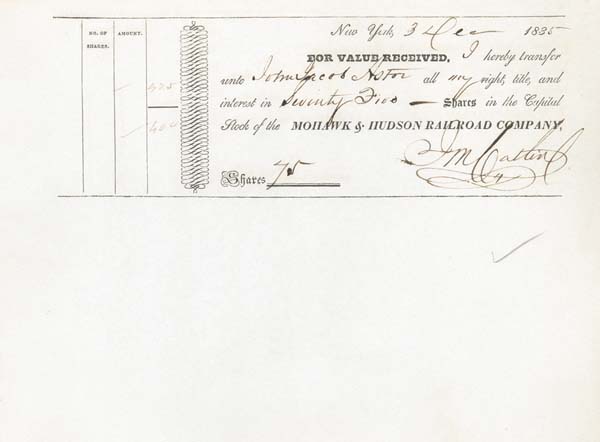 NO. OF SHARES.
AMOUNT.
New York, 3 Dec 1835
FOR VALUE RECEIVED, I hereby transfer
unto John Jacob Astor all my right, title, and
interest in Seventy Five — Shares in the Capital
Stock of the MOHAWK & HUDSON RAILROAD COMPANY,
Shares 75